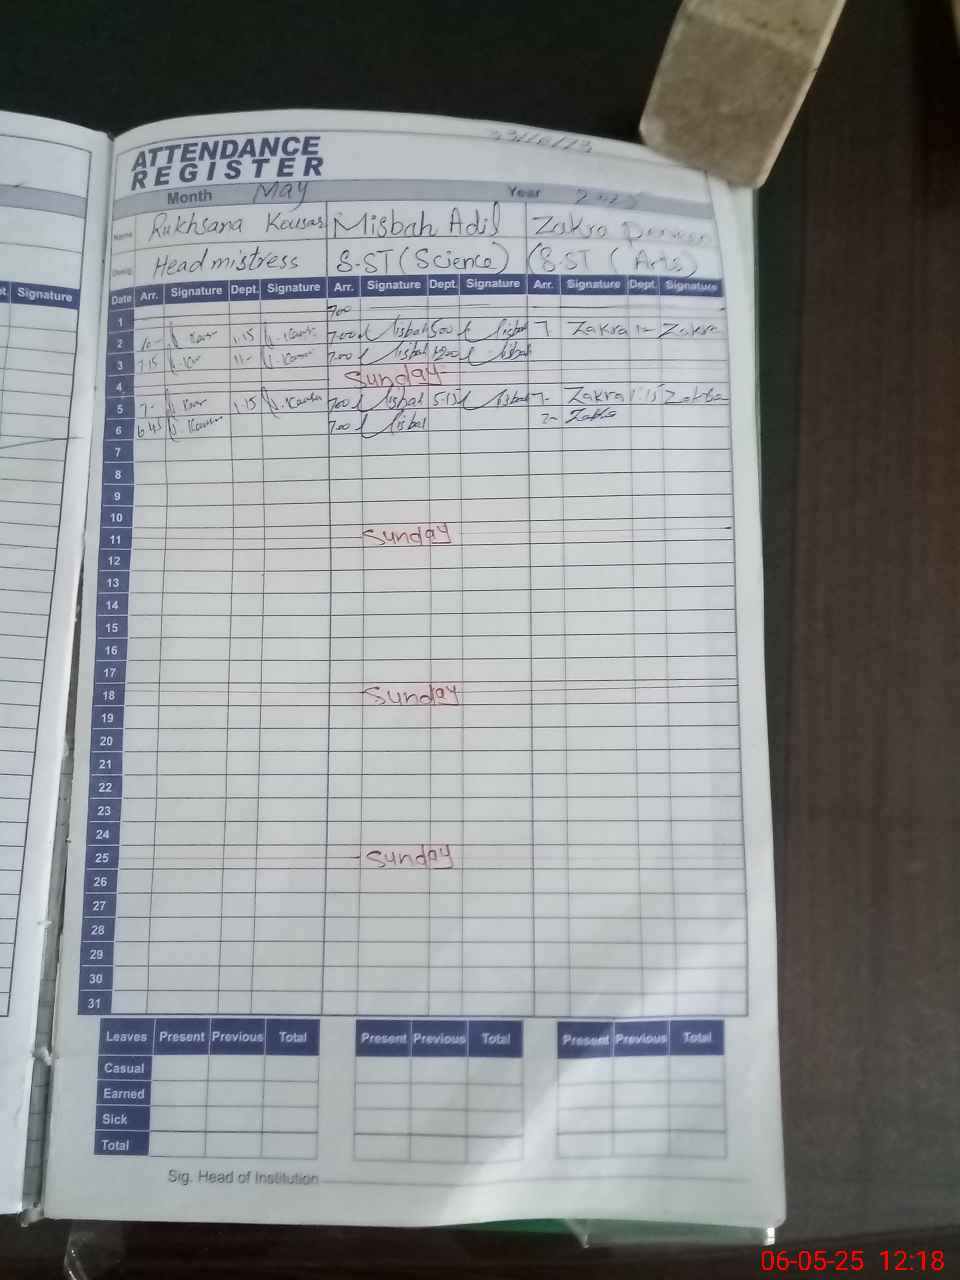 ATTENDANCE
REGISTER
Month May Year 2025
Name Rukhsana Kousar Misbah Adil Zakra
Desig. Headmistress S-ST (Science) (S-ST (Arts)
Signature
Date Arr. Signature Dept. Signature Arr. Signature Dept. Signature Arr. Signature Dept. Signature
1 700
2 1.15 700 Misbah 500 Misbah 7- Zakra 1- Zakra
3 7.15 11- 700 Misbah 1200 Misbah
4 Sunday
5 7- 1.15 700 Misbah 5.15 Misbah 7- Zakra 1:15 Zakra
6 6.45 700 Misbah Zakra
7
8
9
10
11 Sunday
12
13
14
15
16
17
18 Sunday
19
20
21
22
23
24
25 Sunday
26
27
28
29
30
31
Leaves Present Previous Total Present Previous Total Present Previous Total
Casual
Earned
Sick
Total
Sig. Head of Institution
06-05-25 12:18